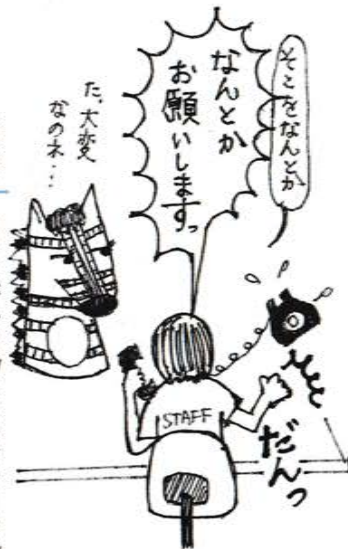 そこをなんとか
なんとか
お願いしますっ
た、大変
なのネ…
STAFF
だんっ